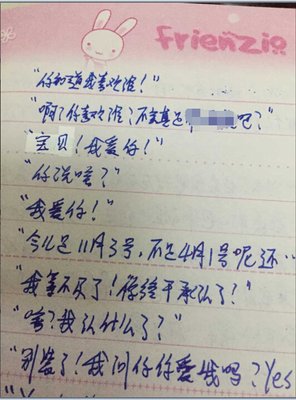 frienzio
"你知道我喜欢谁！"
"啊？你喜欢谁？不会真是 吧？"
"宝贝！我爱你！"
"你说啥？"
"我爱你！"
"今儿是11月3号，不是4月1号呢还…
"我等不及了！你给个承认了！"
"啥？我认什么了？"
"别装了！我问你你爱我吗？Yes